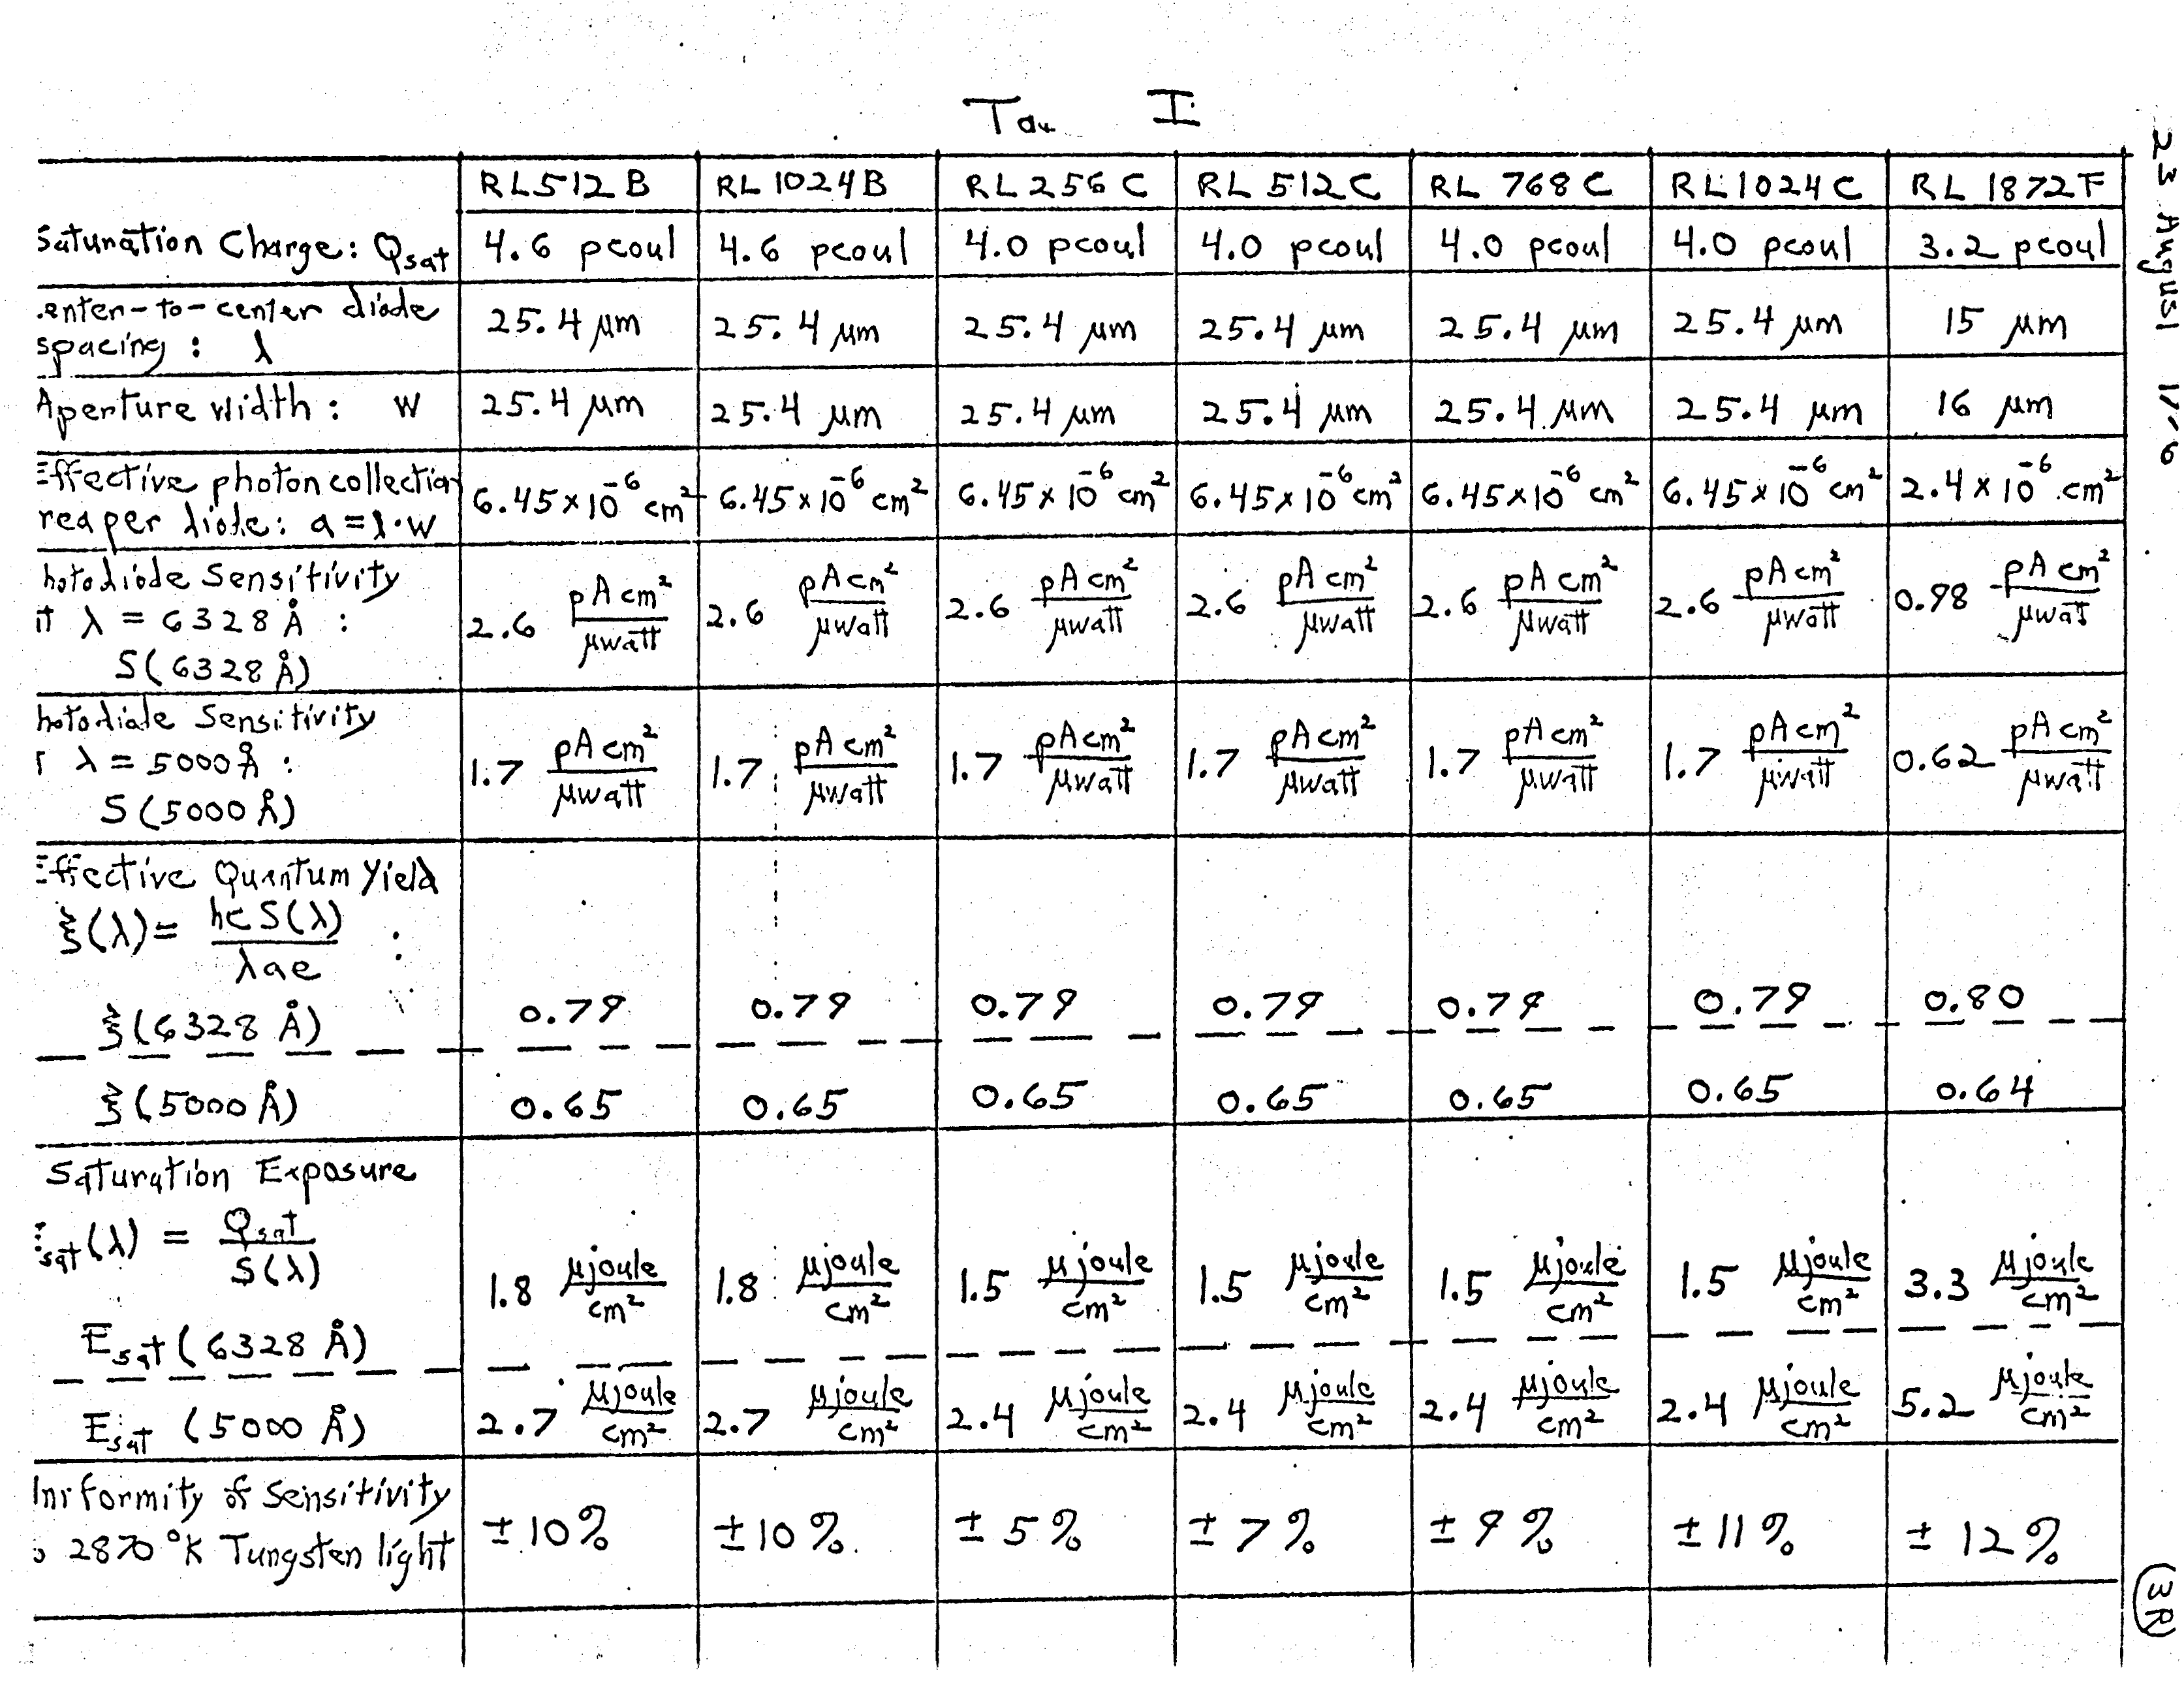 I
RL512B RL1024B RL256C RL512C RL 768C RL1024C RL 1872F
Saturation Charge: Qsat 4.6 pcoul 4.6 pcoul 4.0 pcoul 4.0 pcoul 4.0 pcoul 4.0 pcoul 3.2 pcoul
enter-to-center diode
spacing : l 25.4 μm 25.4 μm 25.4 μm 25.4 μm 25.4 μm 25.4 μm 15 μm
Aperture width : W 25.4 μm 25.4 μm 25.4 μm 25.4 μm 25.4 μm 25.4 μm 16 μm
Effective photon collection
rea per diode: a = l·w 6.45×10⁻⁶ cm² 6.45×10⁻⁶ cm² 6.45×10⁻⁶ cm² 6.45×10⁻⁶ cm² 6.45×10⁻⁶ cm² 6.45×10⁻⁶ cm² 2.4×10⁻⁶ cm²
hotodiode Sensitivity
t λ = 6328 Å : 2.6 pA cm²/μwatt 2.6 pA cm²/μwatt 2.6 pA cm²/μwatt 2.6 pA cm²/μwatt 2.6 pA cm²/μwatt 2.6 pA cm²/μwatt 0.98 pA cm²/μwatt
S(6328 Å)
hotodiode Sensitivity
λ = 5000 Å : 1.7 pA cm²/μwatt 1.7 pA cm²/μwatt 1.7 pA cm²/μwatt 1.7 pA cm²/μwatt 1.7 pA cm²/μwatt 1.7 pA cm²/μwatt 0.62 pA cm²/μwatt
S(5000 Å)
Effective Quantum Yield
ξ(λ) = hc S(λ)/λae :
ξ(6328 Å) 0.79 0.79 0.79 0.79 0.79 0.79 0.80
ξ(5000 Å) 0.65 0.65 0.65 0.65 0.65 0.65 0.64
Saturation Exposure
Esat(λ) = Qsat/S(λ)
Esat(6328 Å) 1.8 μjoule/cm² 1.8 μjoule/cm² 1.5 μjoule/cm² 1.5 μjoule/cm² 1.5 μjoule/cm² 1.5 μjoule/cm² 3.3 μjoule/cm²
Esat (5000 Å) 2.7 μjoule/cm² 2.7 μjoule/cm² 2.4 μjoule/cm² 2.4 μjoule/cm² 2.4 μjoule/cm² 2.4 μjoule/cm² 5.2 μjoule/cm²
niformity of Sensitivity
2870 °K Tungsten light ±10% ±10% ±5% ±7% ±9% ±11% ±12%
23 August
3R